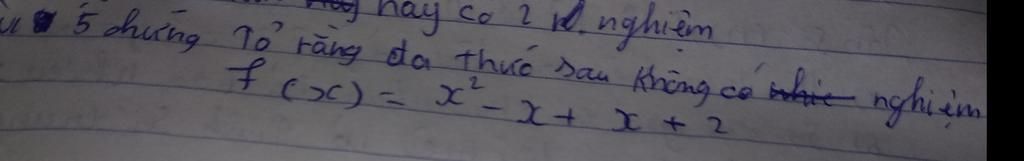 này có 2 nghiệm
5 chứng Tỏ rằng đa thức sau không có nghiệm
f(x) = x² - x + x + 2